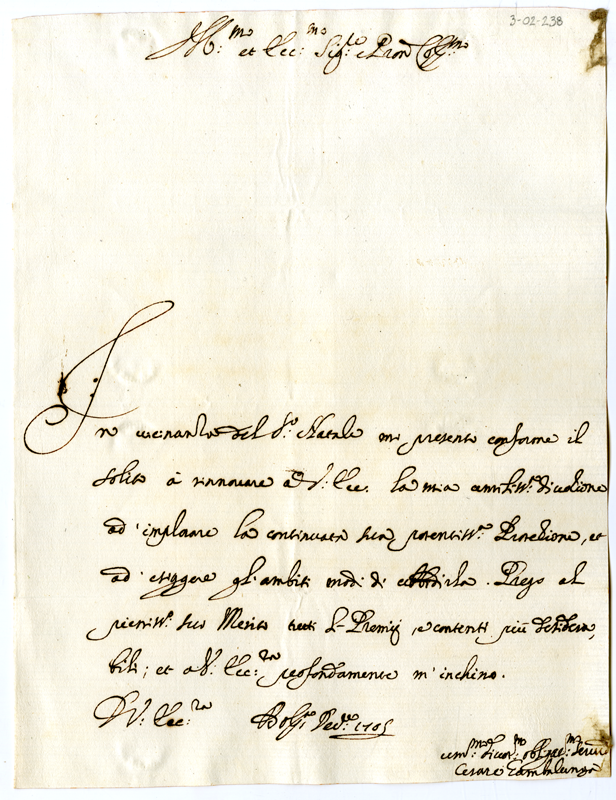 3-02-238
Ill:mo et Ecc:mo Sig:re e Pron Col:mo
In vicinanza del S:to Natale mi presento conforme il
solito à rinnovare à V: Ecc. la mia umiliss:ma divotione
ad' implorare la continuata sua potentiss:ma Protetione, et
ad' esiggere gl'ambiti modi di obbedirla. Prego al
pieniss:o suo Merito tutti li Premij, e contenti più desidera,
bili; et a V: Ecc:za profondamente m'inchino.
D V: Ecc:za Bolg:a 1705
um:mo divot:mo obl:mo Serv:re
Cesare